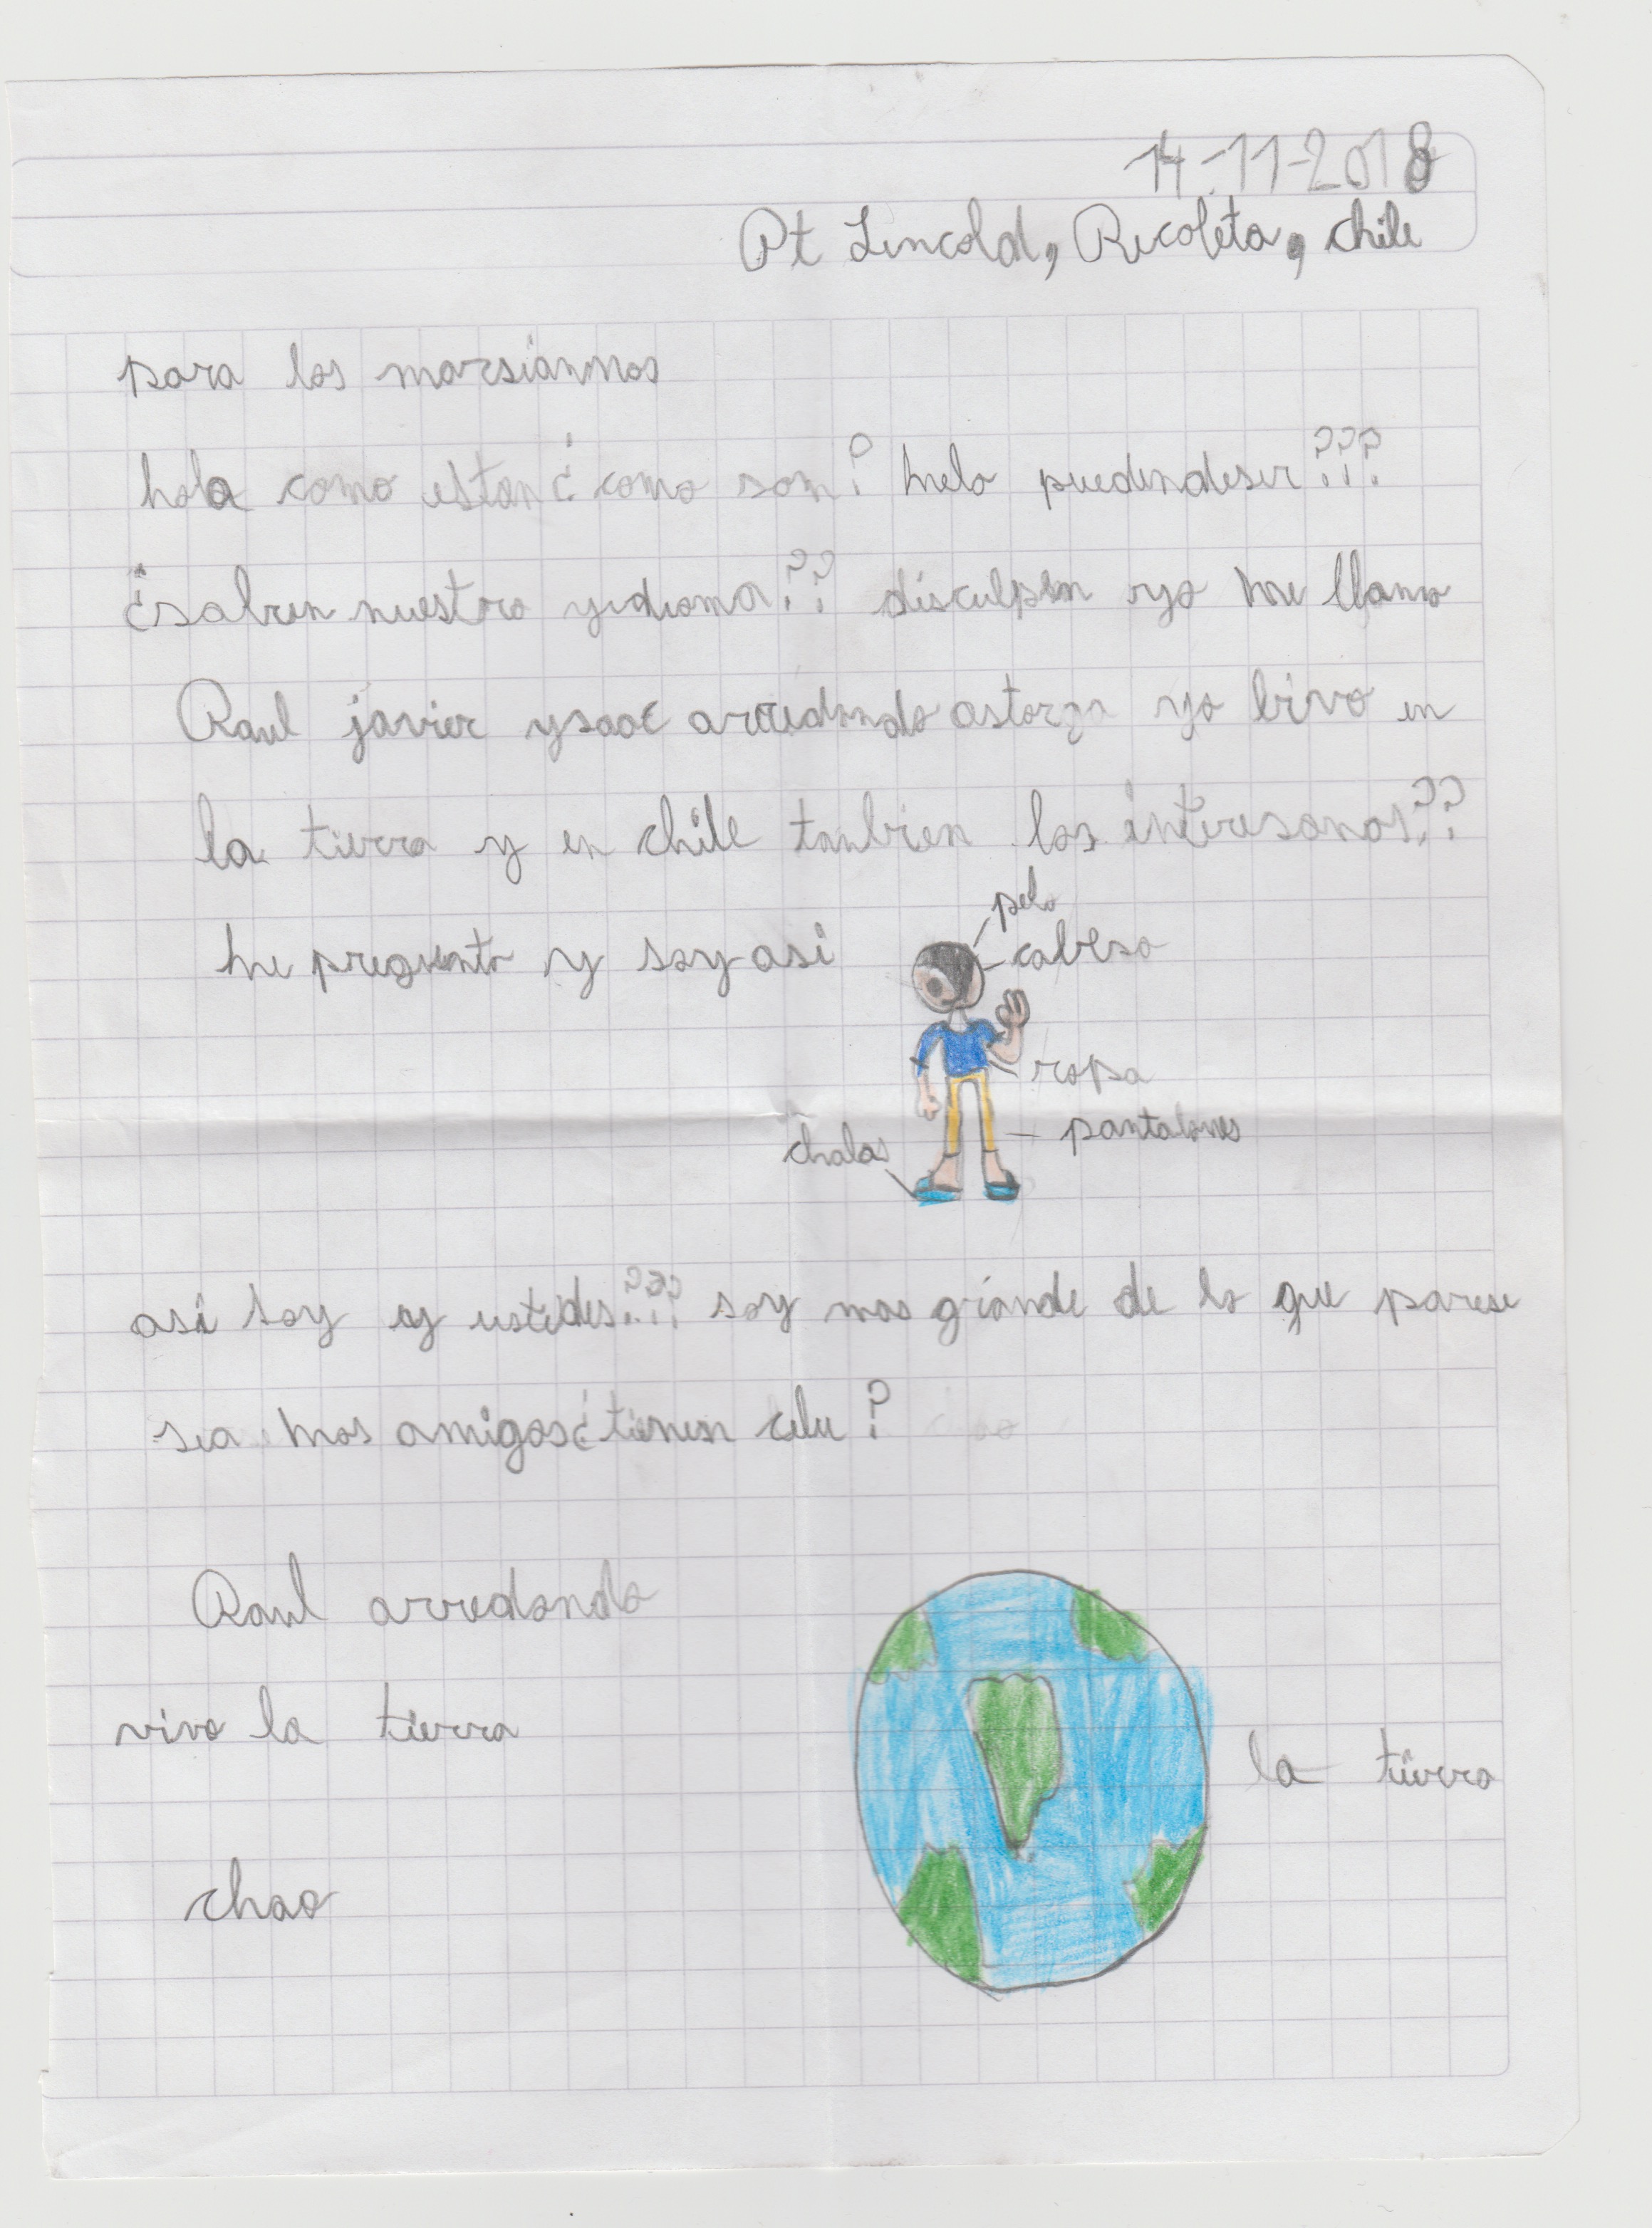 14-11-2018
Pt Lincold, Recoleta, chile
para los marsiannos
hola como estan ¿como son? melo puedendesir???
¿saben nuestro ydioma?? disculpen yo me llamo
Raul javier ysaac arredondo astorga yo bivo en
la tierra y en chile tanbien los interesanos??
pelo
me pregunto y soy asi
cabesa
ropa
pantalones
chalas
asi soy y ustedes??? soy mas grande de lo que parese
sea mos amigos ¿tienen celu?
Raul arredondo
vivo la tierra
la tierra
chao